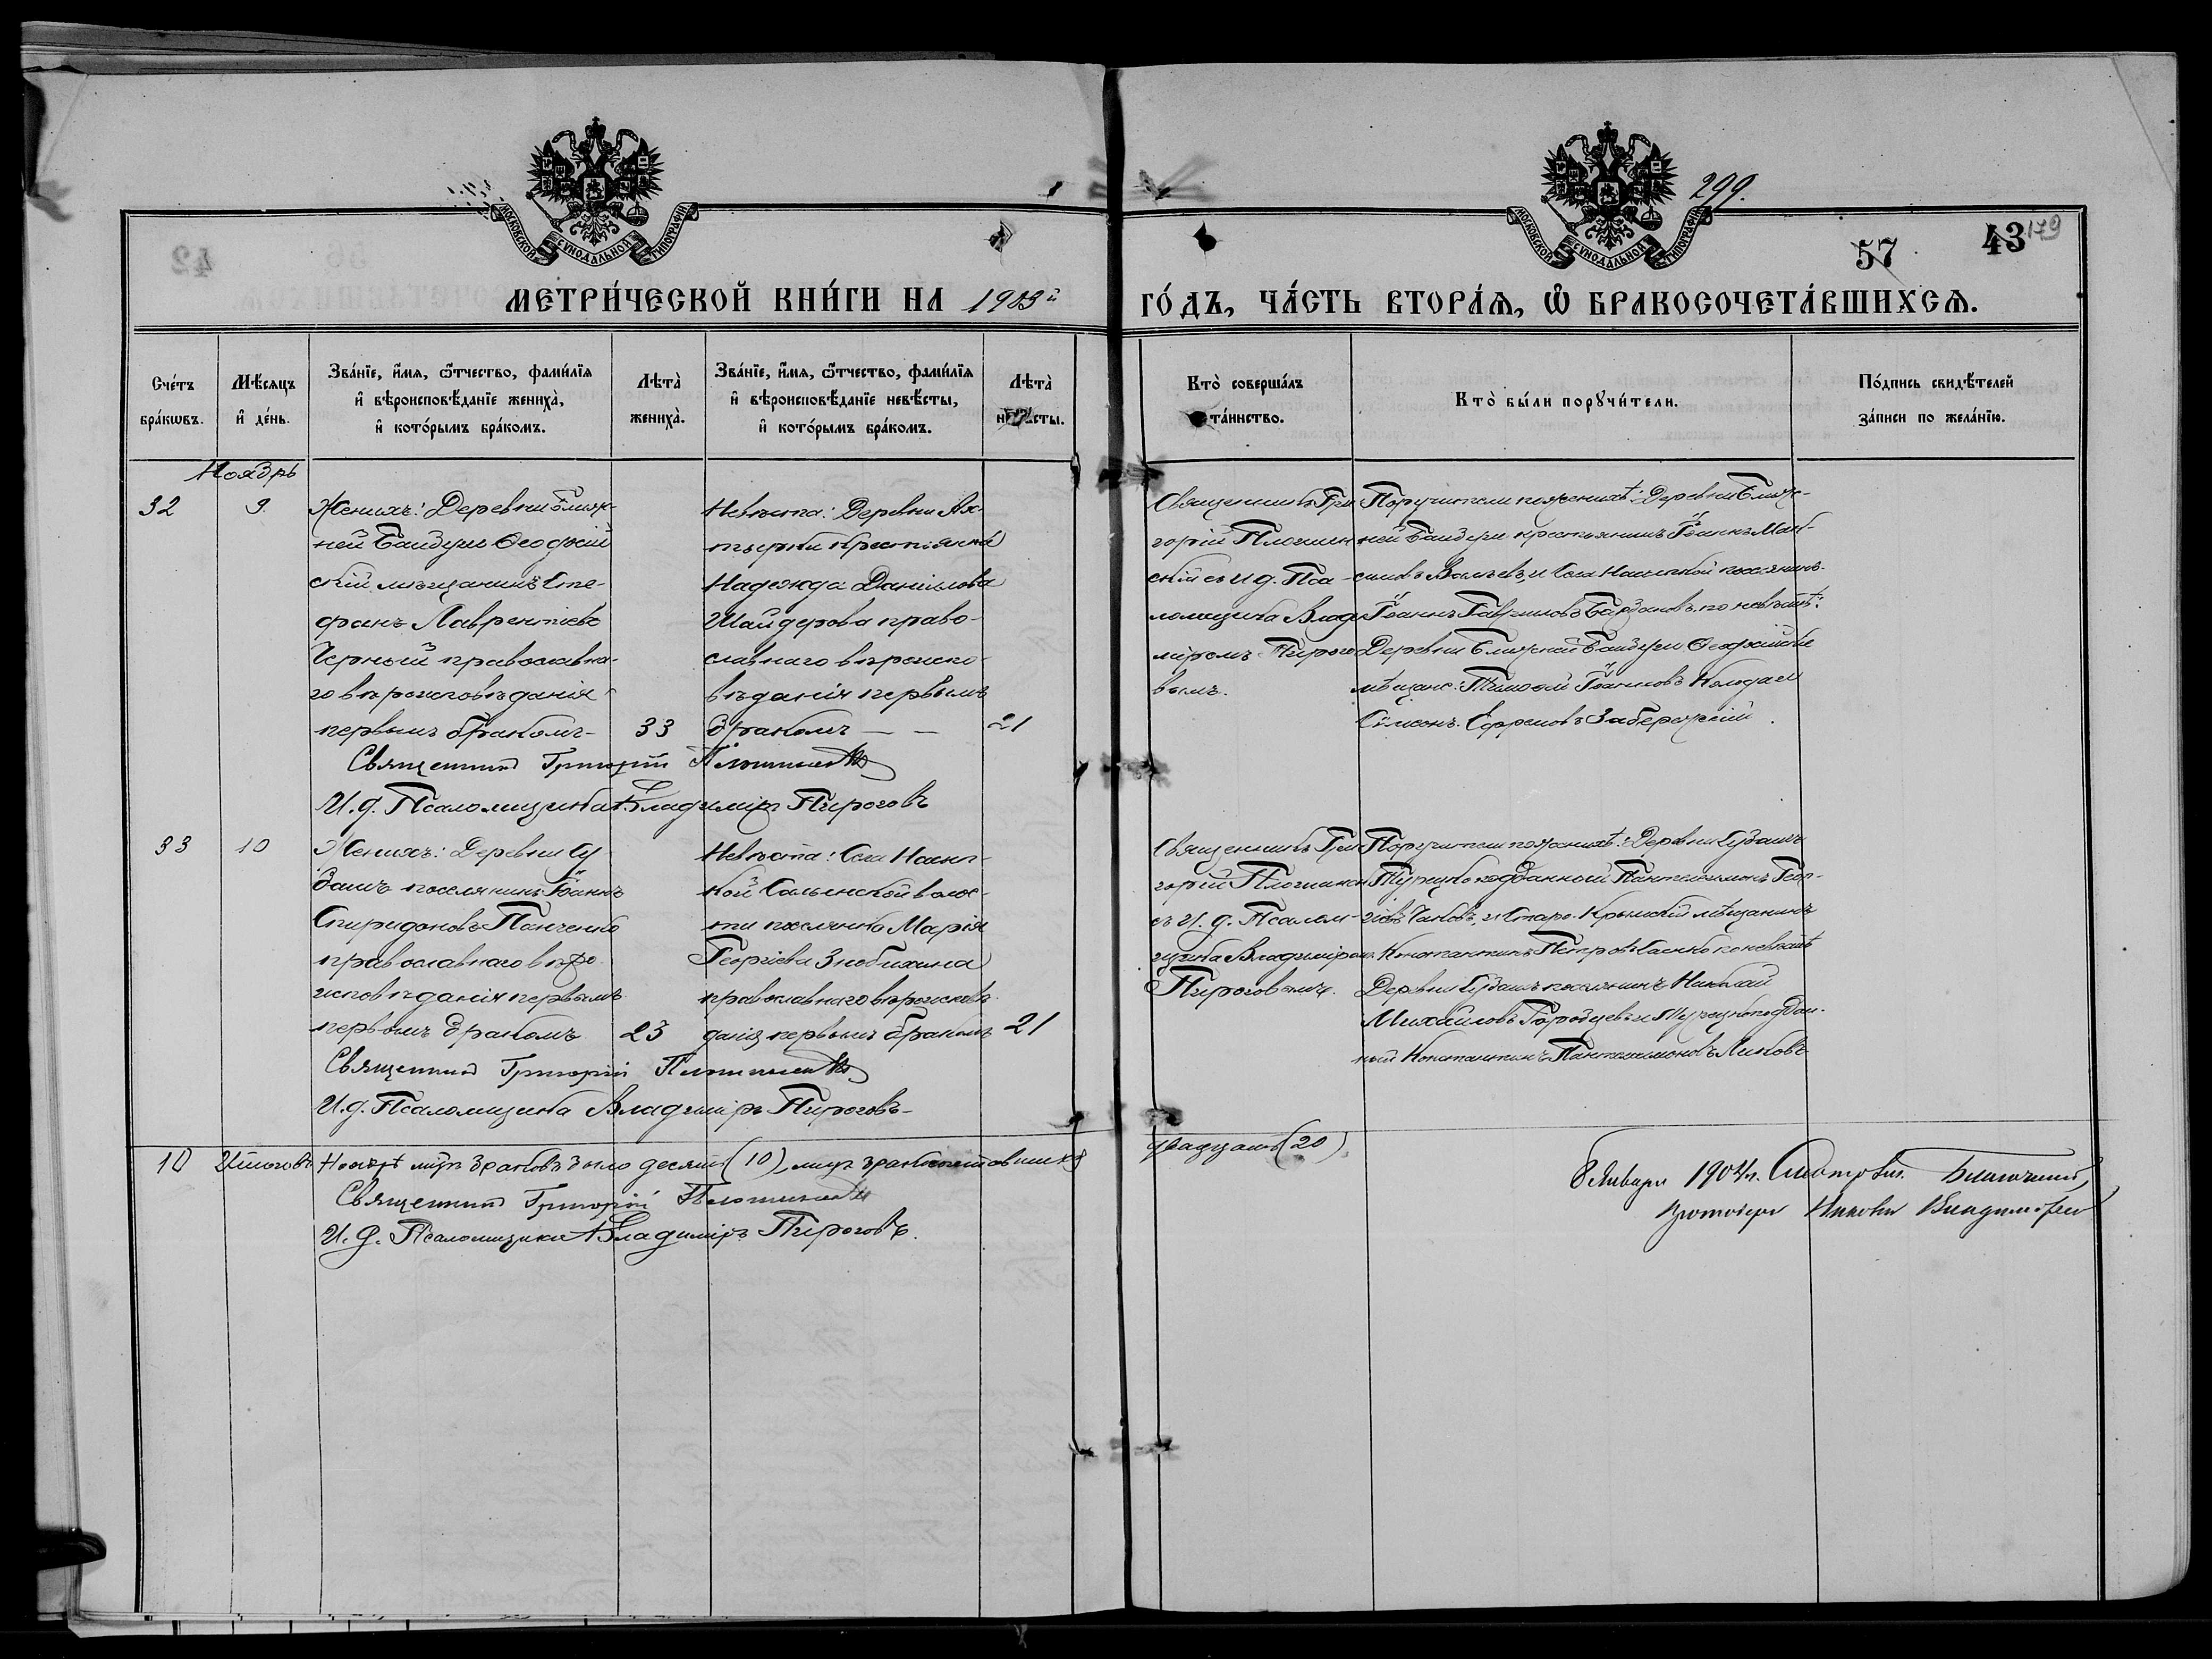 299.
57
43
179
МОСКОВСКОЙ СѴНОДАЛЬНОЙ ТИПОГРАФІИ
МОСКОВСКОЙ СѴНОДАЛЬНОЙ ТИПОГРАФІИ
МЕТРИ́ЧЕСКОЙ КНИ́ГИ НА 1903й ГО́ДЪ, ЧА́СТЬ ВТОРА́Ѧ, Ѽ БРАКОСОЧЕТА́ВШИХСѦ.
Сче́тъ бра́кѡвъ.
Мѣ́сяцъ и҆ де́нь.
Зва́нїе, и҆́мя, ѻ҆́тчество, фами́лїя
и҆ вѣроисповѣ́данїе жениха̀,
и҆ кото́рымъ бра́комъ.
Лѣта̀ жениха̀.
Зва́нїе, и҆́мя, ѻ҆́тчество, фами́лїя
и҆ вѣроисповѣ́данїе невѣ́сты,
и҆ кото́рымъ бра́комъ.
Лѣта̀ невѣ́сты.
Кто̀ соверша́лъ та́инство.
Кто̀ бы́ли порꙋчи́тели.
По́дпись свидѣ́телей
за́писи по жела́нїю.
Ноябрь
32
9.
Женихъ: Деревни Ближ-
ней Байбуги Ѳеодосій
скій мѣщанинъ Сте-
фанъ Лаврентіевъ
Черный православна-
го вѣроисповѣданія
первымъ бракомъ-
33
Невѣста: Деревни
крестьянка
Надежда Даніилова
Шайдерова право-
славнаго вѣроиспо-
вѣданія первымъ
бракомъ — —
21
Священникъ Гри
горій Плотин
скій съ И. д. Пса-
ломщика Влади
міромъ Пирого
вымъ.
Поручители по женихѣ: Деревни Ближ-
ней Байбуги крестьянинъ Іоаннъ Мак-
симовъ и Села поселянинъ
Іоаннъ Гавріиловъ по невѣстѣ:
Деревни Ближней Байбуги Ѳеодосійскіе
мѣщане: Тимоѳей Іоанновъ и
Сѵмеонъ Ефремовъ Забережній.
Священникъ Григорій
И. д. Псаломщика Владиміръ Пироговъ
33
10
Женихъ: Деревни Су
башъ поселянинъ Іоаннъ
Спиридоновъ Панченко
православнаго вѣро
исповѣданія первымъ
первымъ бракомъ
23
Невѣста: Села
кой Сальнской волос-
ти поселянка Марія
Георгіева Знобихина
православнаго вѣроисповѣ
данія первымъ бракомъ
21
Священникъ Гри
горій Плотинск
съ И. д. Псалом-
щика Владиміромъ
Пироговымъ.
Поручители по женихѣ: Деревни Субашъ
Турецкоподданный Пантелеимонъ Геор-
гіевъ и Старо-Крымскій мѣщанинъ
Константинъ Петровъ по невѣстѣ
Деревни Субашъ поселянинъ Николай
Михайловъ Городцевъ и Турецкоподдан-
ный Константинъ Пантелеимоновъ Ликовъ
Священникъ Григорій
И. д. Псаломщика Владиміръ Пироговъ-
10 Итого въ Ноябрѣ мцѣ браковъ было десять (10), лицъ бракосочетавшихся двадцать (20)
Священникъ Григорій
И. д. Псаломщика Владиміръ Пироговъ.
8 Января 1904 г. Благочинный,